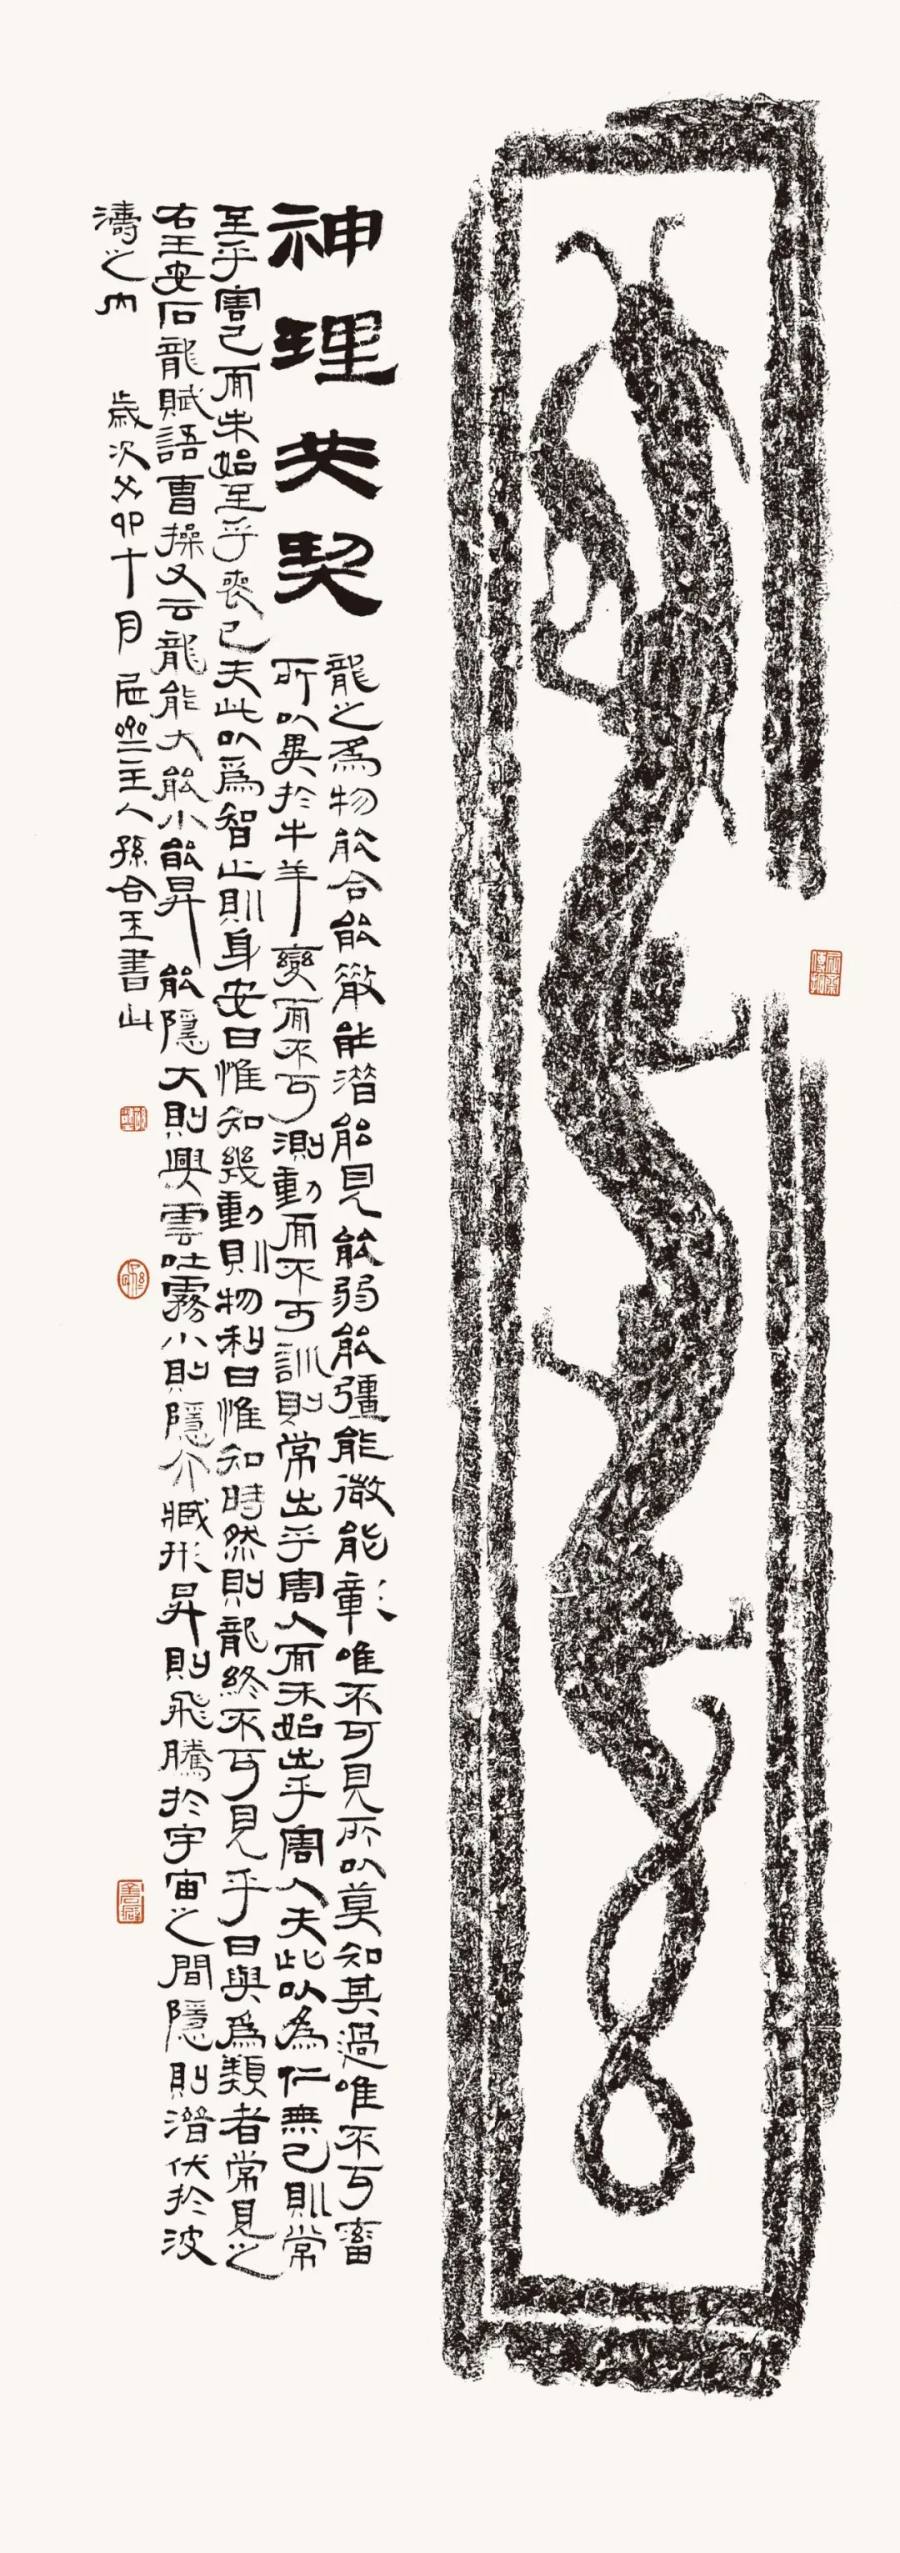 神理共契
龍之為物能合能散能潛能見能弱能彊能微能彰唯不可見所以莫知其過唯不可畜
所以異於牛羊變而不可測動而不可訓則常出乎害人而未始出乎害人夫此以為仁無己則常
至乎害己而未始至乎喪己夫此以爲智止則身安曰惟知幾動則物利曰惟知時然則龍終不可見乎曰與爲類者常見之
右王安石龍賦語曹操又云龍能大能小能昇能隱大則興雲吐霧小則隱介臧形昇則飛騰於宇宙之間隱則潛伏於波
濤之內
歲次癸卯十月 主人孫合玉書